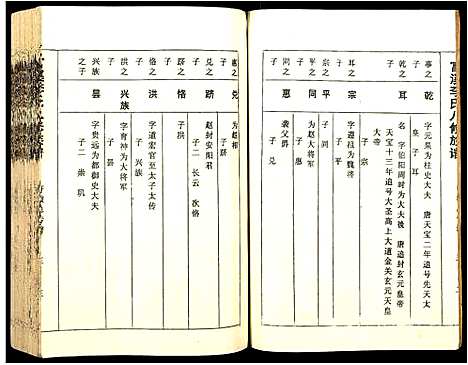 富溪李氏八修族譜
事之子
乾
字元杲为柱史大夫 唐天宝二年追号先天太
皇 子 耳
乾之子
耳
字伯阳周时为大夫後 唐追封玄元皇帝
天宝十三年追号大圣高上大道金关玄元天皇
大帝
子 宗
耳之子
宗
字尊祖为魏将
子 平
宗之子
平
子 同
平之子
同
为赵大将军
子 惠
同之子
惠
袭父爵
子 兑
惠之子
兑
为赵相
子 跻
兑之子
跻
赵封安阳君
子二 长云 次恪
跻之子
恪
子 洪
恪之子
洪
字道宏官至太子太傅
子 兴族
洪之子
兴族
字育神为大将军
子 昙
兴族之子
昙
字贵远为都御史大夫
子二 崇 玑